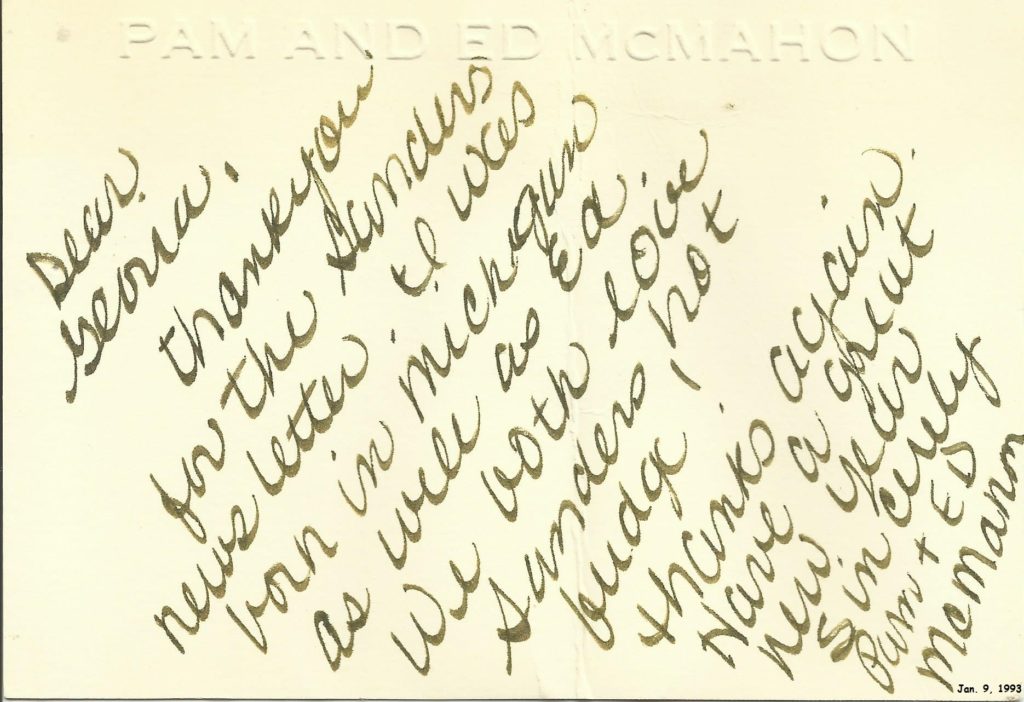 PAM AND ED McMAHON
Dear
Thankyou
for the Sanders
news letter I was
born in michigan
as well as Ed.
We both love
Sanders hot
fudge
thanks again.
Have a great
new year
Sincerely
Pam + ED
McMahon
Jan. 9, 1993